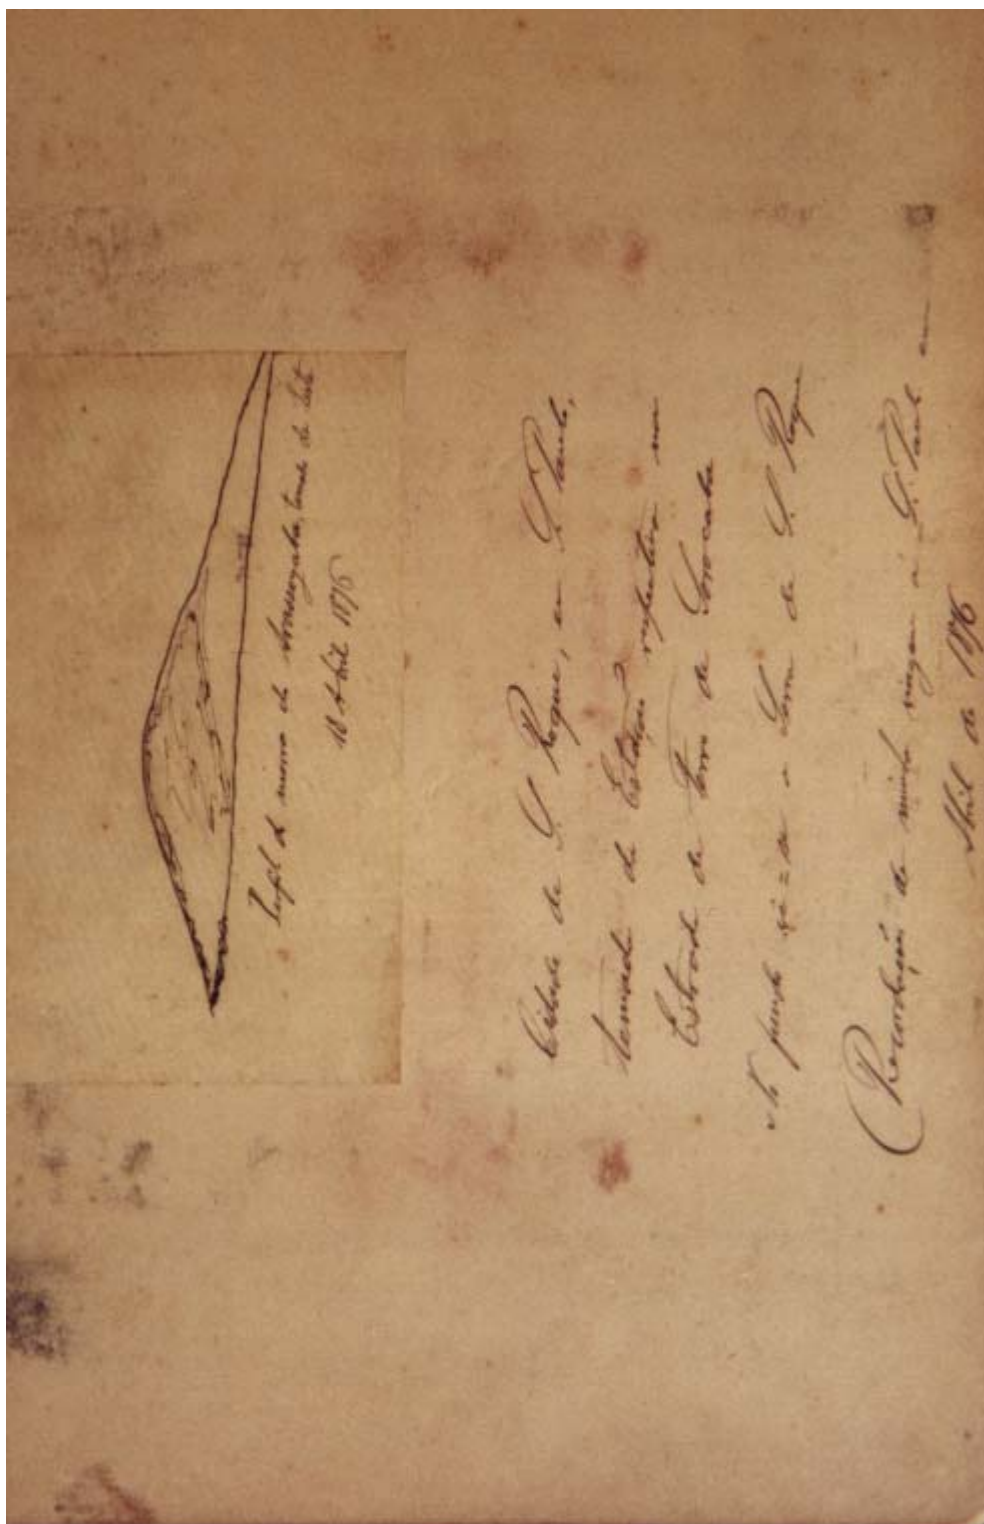 Perfil do morro de Araassoyaba, tomado de Leste
18 Abril 1876
Cidade de S. Roque, em S. Paulo,
tomada da Estação respectiva na
Estrada de Ferro de Sorocaba
Ao fundo vê-se a Serra de S. Roque
(Recordação de minha viagem a S. Paulo em
Abril de 1876